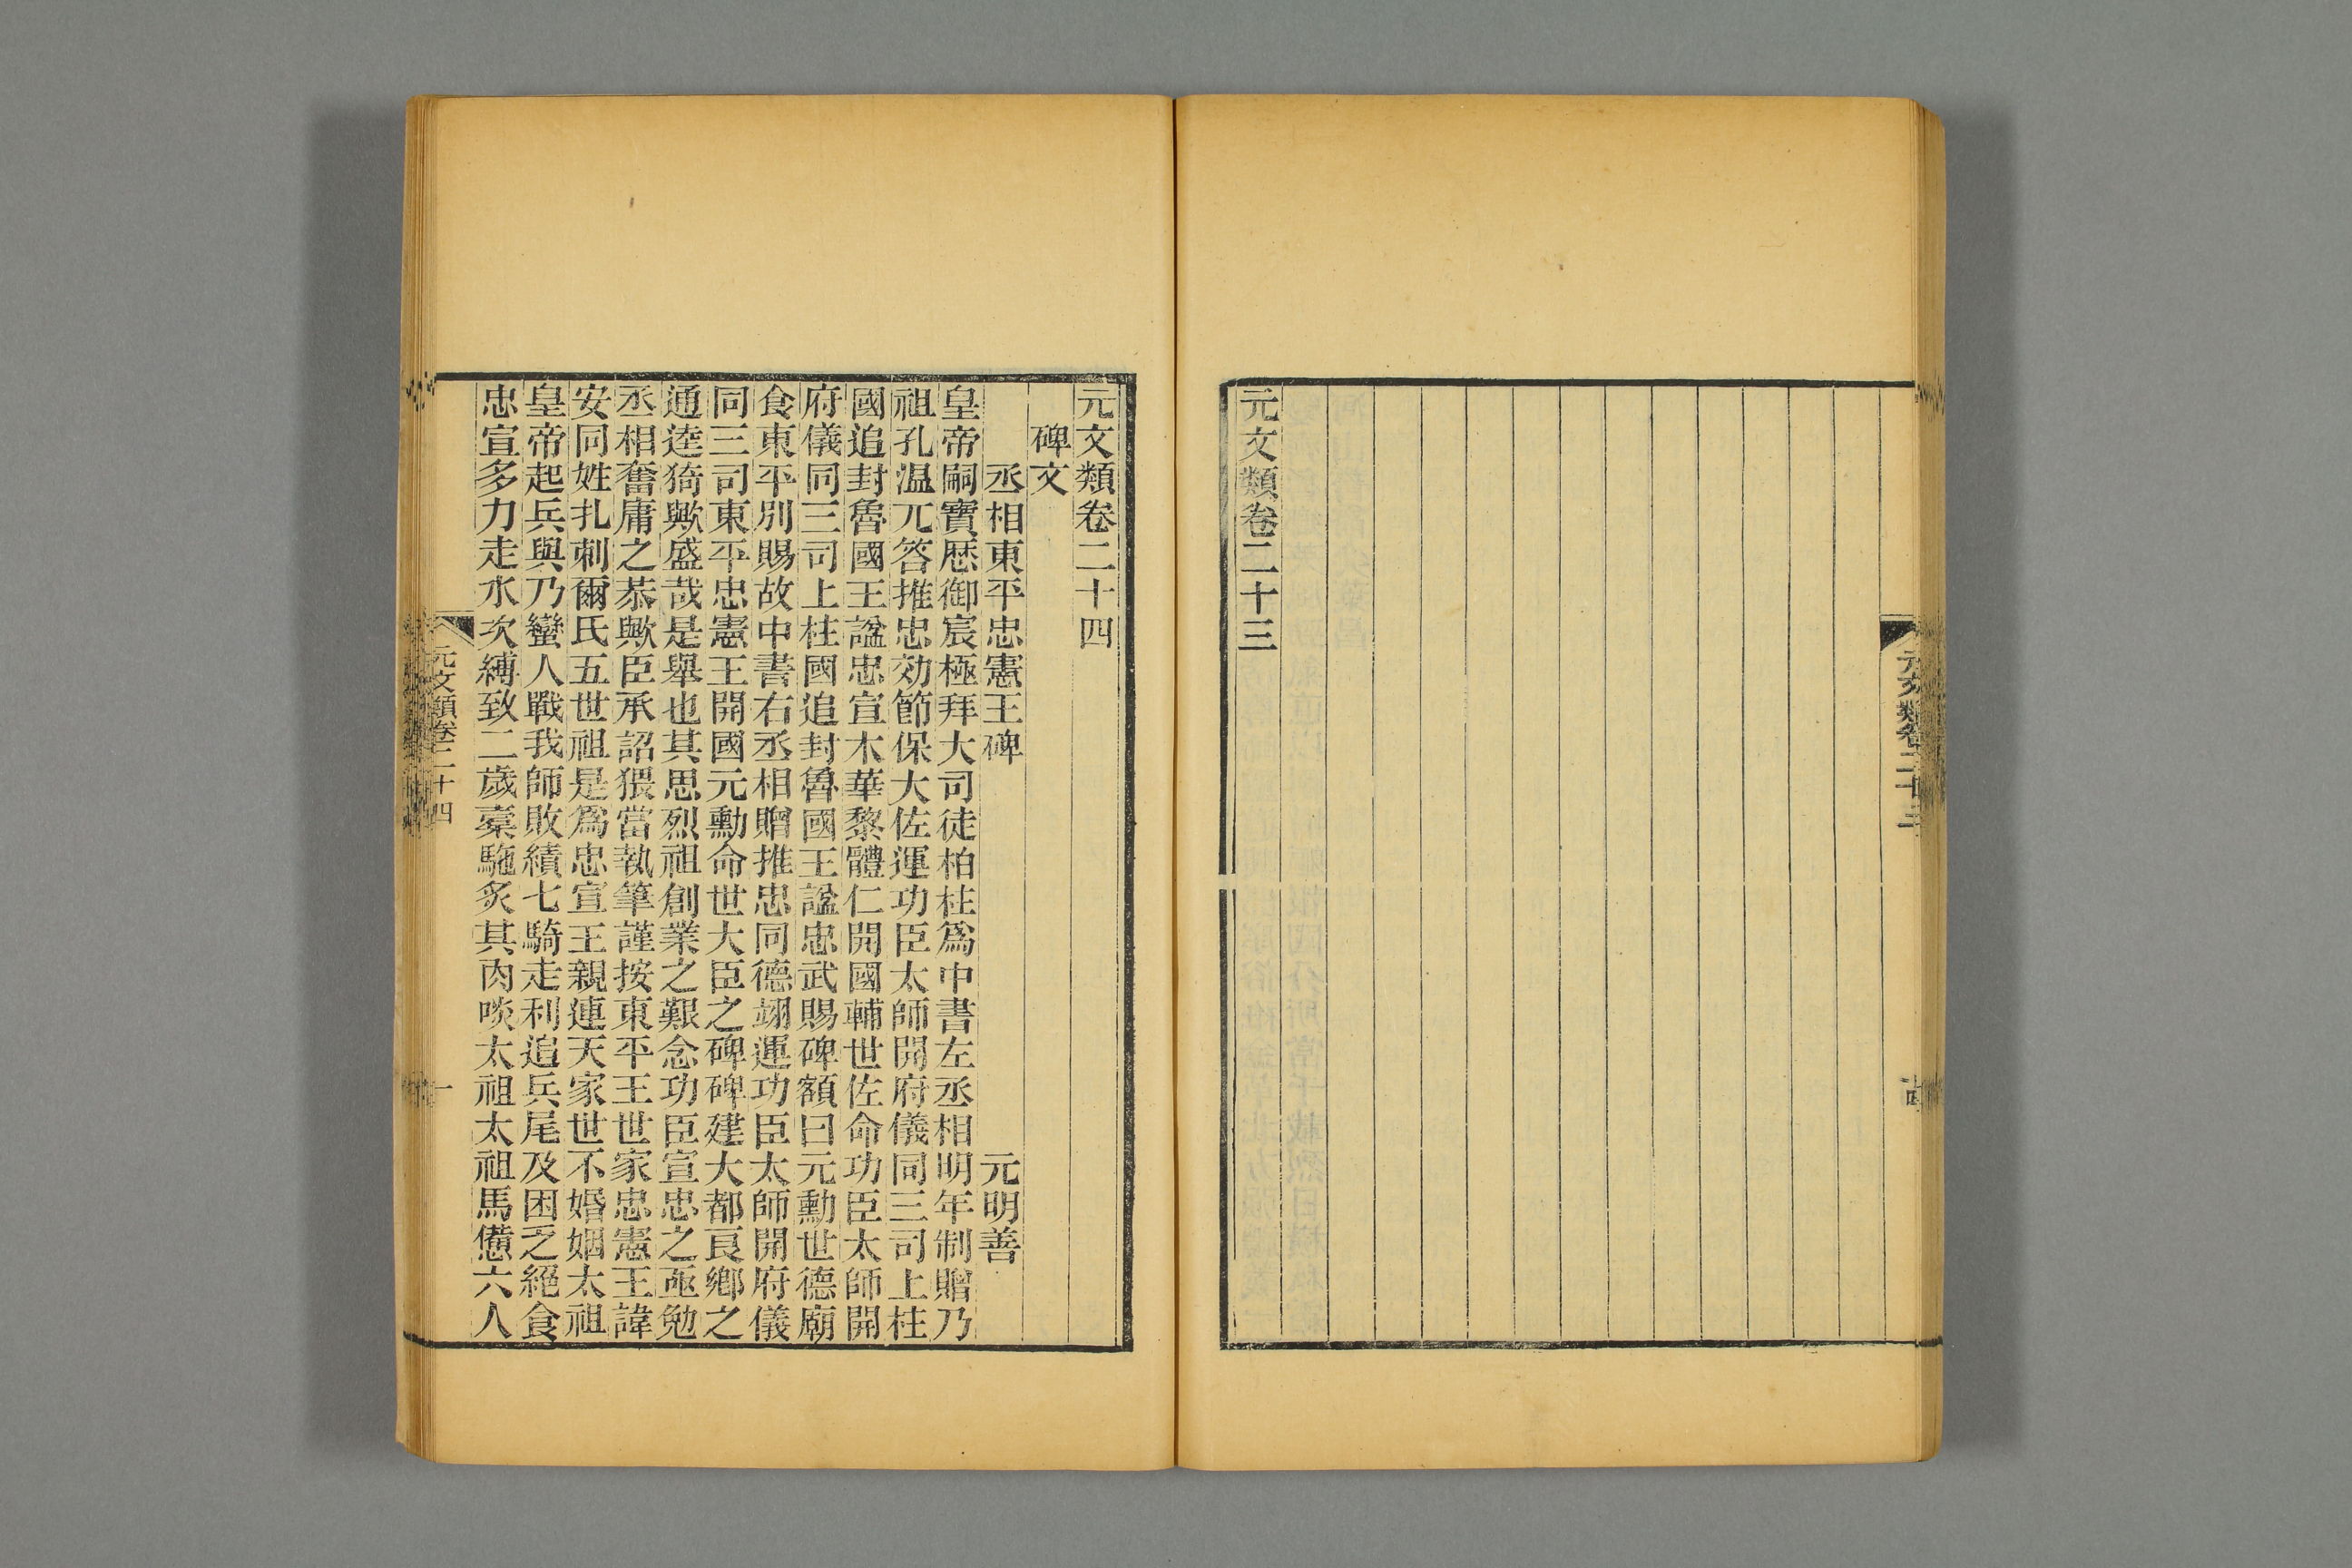 元文類卷二十三
元文類卷二十四
碑文
丞相東平忠憲王碑 元明善
皇帝嗣寶厯御宸極拜大司徒柏柱爲中書左丞相明年制贈乃
祖孔溫兀答推忠効節保大佐運功臣太師開府儀同三司上柱
國追封魯國王諡忠宣木華黎體仁開國輔世佐命功臣太師開
府儀同三司上柱國追封魯國王諡忠武賜碑額曰元勳世德廟
食東平別賜故中書右丞相贈推忠同德翊運功臣太師開府儀
同三司東平忠憲王開國元勳命世大臣之碑碑建大都良鄉之
通逵猗歟盛哉是舉也其思烈祖創業之艱念功臣宣忠之亟勉
丞相奮庸之恭歟臣承詔猥當執筆謹按東平王世家忠憲王諱
安同姓扎剌爾氏五世祖是爲忠宣王親連天家世不婚姻太祖
皇帝起兵與乃蠻人戰我師敗績七騎走利追兵尾及困乏絕食
忠宣多力走水次縛致二歲槖駞炙其肉啖太祖太祖馬憊六人
元文類卷二十四
一